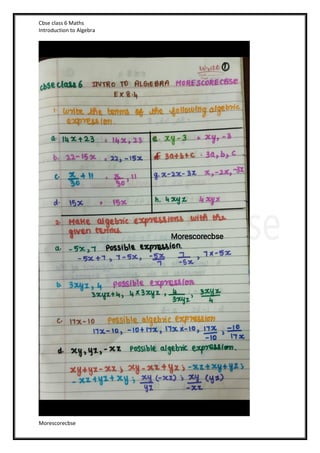 Cbse class 6 Maths
Introduction to Algebra
Write ①
cbse class 6 INTRO TO ALGEBRA MORESCORECBSE
EX 8.4
1. Write the terms of the following algebric
expression.
a. 14x+23 = 14x, 23
e. xy-3 = xy, -3
b. 22-15x = 22, -15x
f. 3a+b+c = 3a, b, c
c. x/30 + 11 = x/30, 11
g. x-2x-3z x, -2x, -3z
d. 15x = 15x
h. 4xyz 4xyz
2. Make algebric expressions with the
given terms.
Morescorecbse
a. -5x, 7 Possible expression
-5x+7, 7-5x, -5x/7, 7/-5x, 7x-5x
b. 3xyz, 4 possible expression
3xyz+4, 4x3xyz, 4/3xyz, 3xyz/4
c. 17x-10 Possible algebric expression
17x-10, -10+17x, 17xx-10, 17x/-10, -10/17x
d. xy, yz, -xz Possible algebric expression.
xy+yz-xz ; xy-xz+yz ; -xz+xy+yz ;
-xz+yz+xy ; xy/yz (-xz) ; xy/-xz (yz)
Morescorecbse